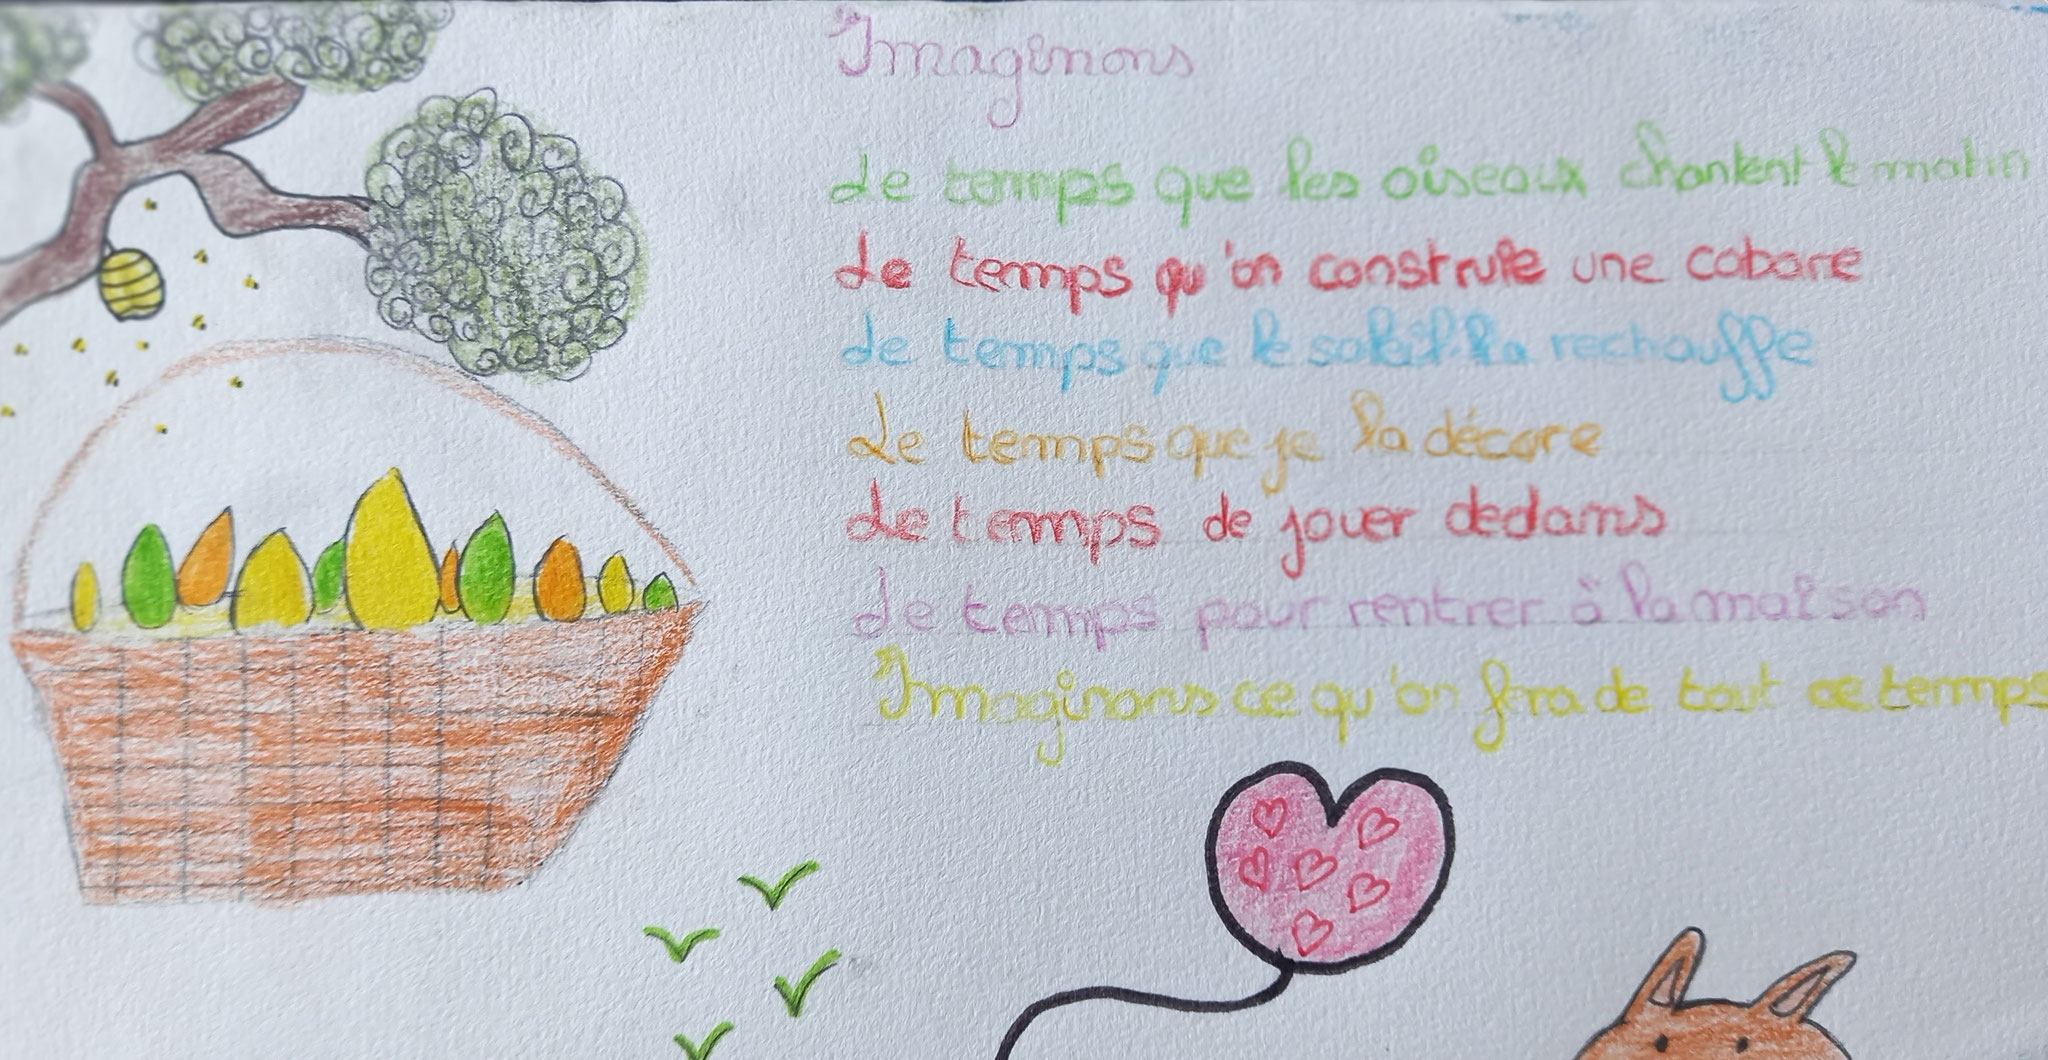 Imaginons
Le temps que les oiseaux chantent le matin
Le temps qu'on construie une cabane
Le temps que le soleil la rechauffe
Le temps que je la décore
Le temps de jouer dedans
Le temps pour rentrer à la maison
Imaginons ce qu'on fera de tout ce temps